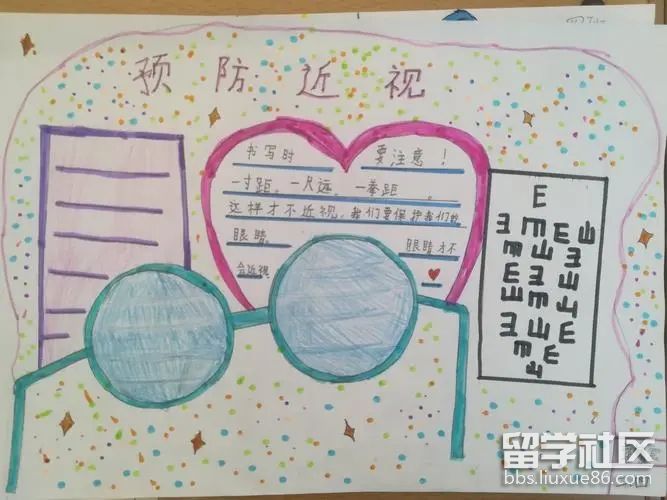 预防近视
书写时 要注意！
一寸距。一尺远。一拳距。
这样才不近视，我们要保护我们的
眼睛。 眼睛才不
会近视。
E
留学社区
bbs.liuxue86.com